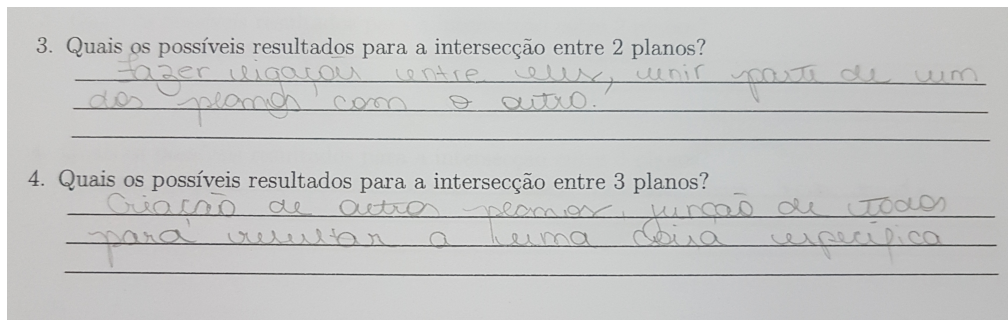 3. Quais os possíveis resultados para a intersecção entre 2 planos?
fazer ligaçou entre eles, unir parte de um
dos planos com o outro.
4. Quais os possíveis resultados para a intersecção entre 3 planos?
Criação de outros planos, junção de todos
para resultar a uma coisa especifica